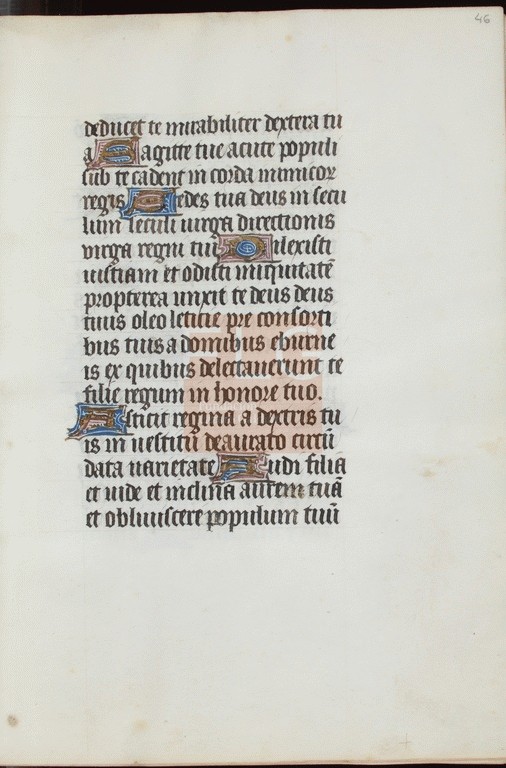 46
deducet te mirabiliter dextera tu
a Sagitte tue acute populi
sub te cadent in corda inimicoꝝ
regis Sedes tua deus in secu
lum seculi uirga directionis
virga regni tui Dilexisti
iusticiam et odisti iniquitatē
propterea unxit te deus deus
tuus oleo leticie pre consorti
bus tuis a domibus eburne
is ex quibus delectauerunt te
filie regum in honore tuo.
Astitit regina a dextris tu
is in uestitu deaurato circū
data uarietate Audi filia
et uide et inclina aurem tuā
et obliuiscere populum tuū